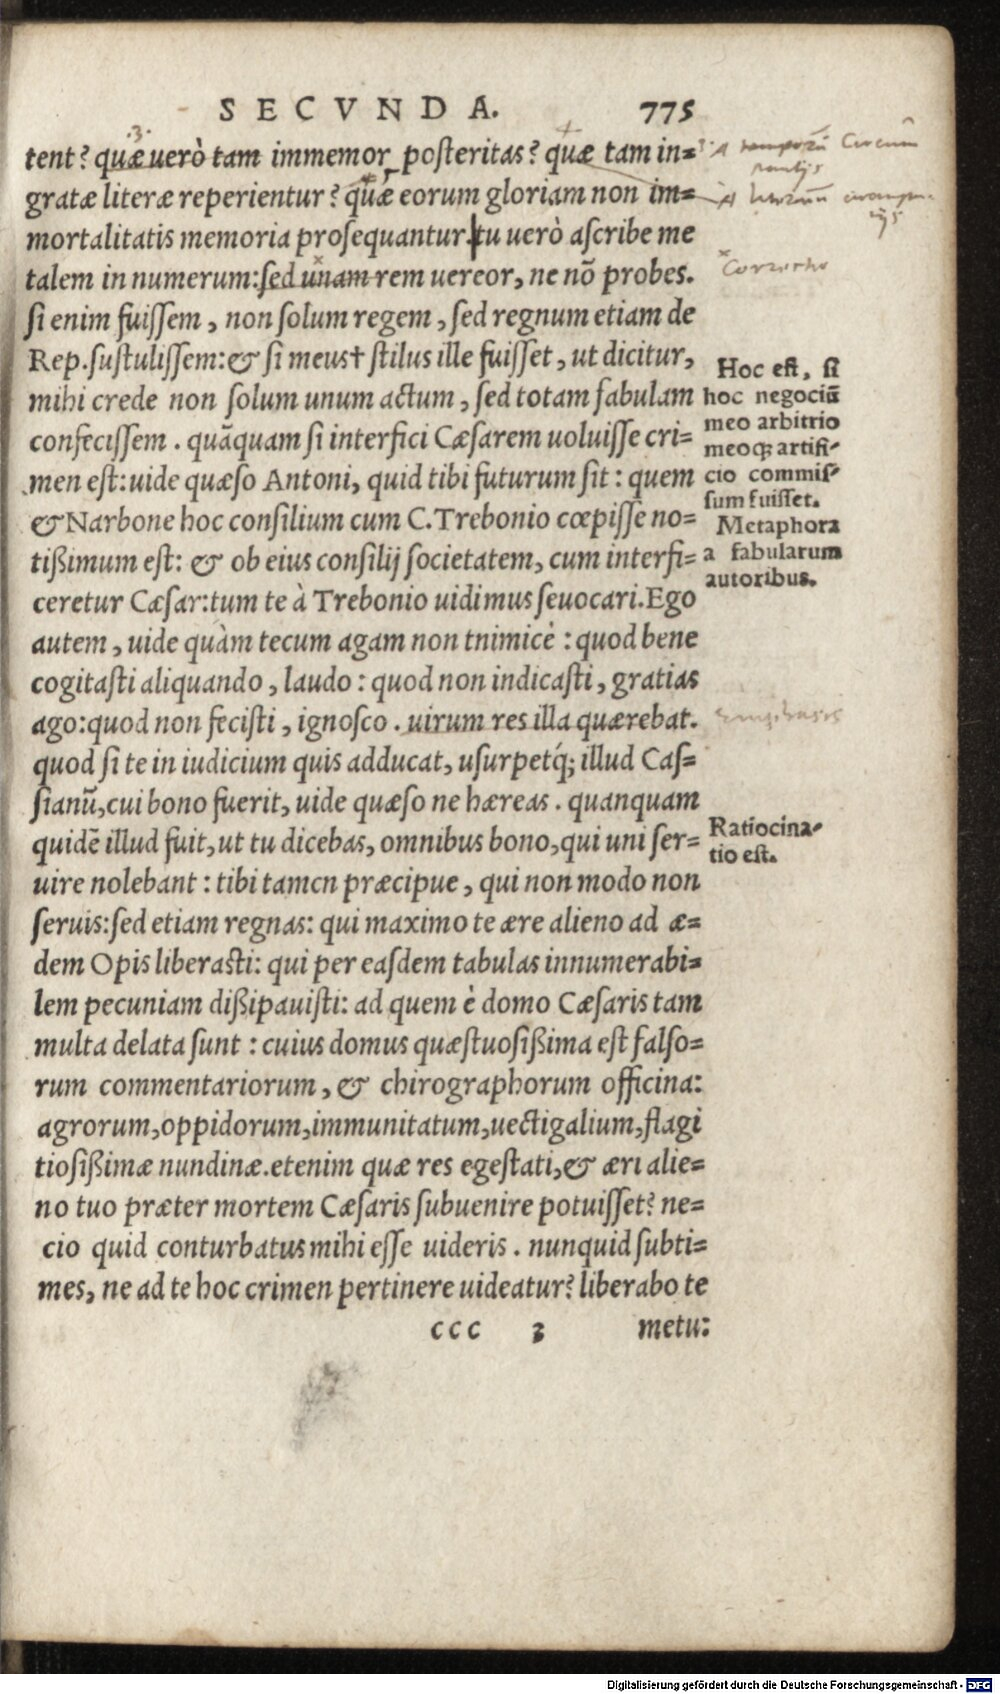 SECVNDA. 775
tent? quæ uerò tam immemor posteritas? quæ tam in=
gratæ literæ reperientur? quæ eorum gloriam non im=
mortalitatis memoria prosequantur. tu uerò ascribe me
talem in numerum: sed unam rem uereor, ne nõ probes.
si enim fuissem, non solum regem, sed regnum etiam de
Rep. sustulissem: & si meus† stilus ille fuisset, ut dicitur,
mihi crede non solum unum actum, sed totam fabulam
confecissem. quãquam si interfici Cæsarem uoluisse cri=
men est: uide quæso Antoni, quid tibi futurum sit: quem
& Narbone hoc consilium cum C. Trebonio cœpisse no=
tißimum est: & ob eius consilij societatem, cum interfi=
ceretur Cæsar: tum te à Trebonio uidimus seuocari. Ego
autem, uide quàm tecum agam non tnimicè: quod bene
cogitasti aliquando, laudo: quod non indicasti, gratias
ago: quod non fecisti, ignosco. uirum res illa quærebat.
quod si te in iudicium quis adducat, usurpetq́; illud Cas=
sianũ, cui bono fuerit, uide quæso ne hæreas. quanquam
quidẽ illud fuit, ut tu dicebas, omnibus bono, qui uni ser=
uire nolebant: tibi tamcn præcipue, qui non modo non
seruis: sed etiam regnas: qui maximo te ære alieno ad æ=
dem Opis liberasti: qui per easdem tabulas innumerabi=
lem pecuniam dißipauisti: ad quem è domo Cæsaris tam
multa delata sunt: cuius domus quæstuosißima est falso=
rum commentariorum, & chirographorum officina:
agrorum, oppidorum, immunitatum, uectigalium, flagi
tiosißimæ nundinæ. etenim quæ res egestati, & æri alie=
no tuo præter mortem Cæsaris subuenire potuisset? ne=
cio quid conturbatus mihi esse uideris. nunquid subti=
mes, ne ad te hoc crimen pertinere uideatur? liberabo te
ccc 3 metu:
.3.
A temporũ Circum
Correctio
Hoc est, si
hoc negociũ
meo arbitrio
meoq; artifi-
cio commis-
sum fuisset.
Metaphora
a fabularum
autoribus.
Emphasis
Ratiocina-
tio est.
Digitalisierung gefördert durch die Deutsche Forschungsgemeinschaft - DFG